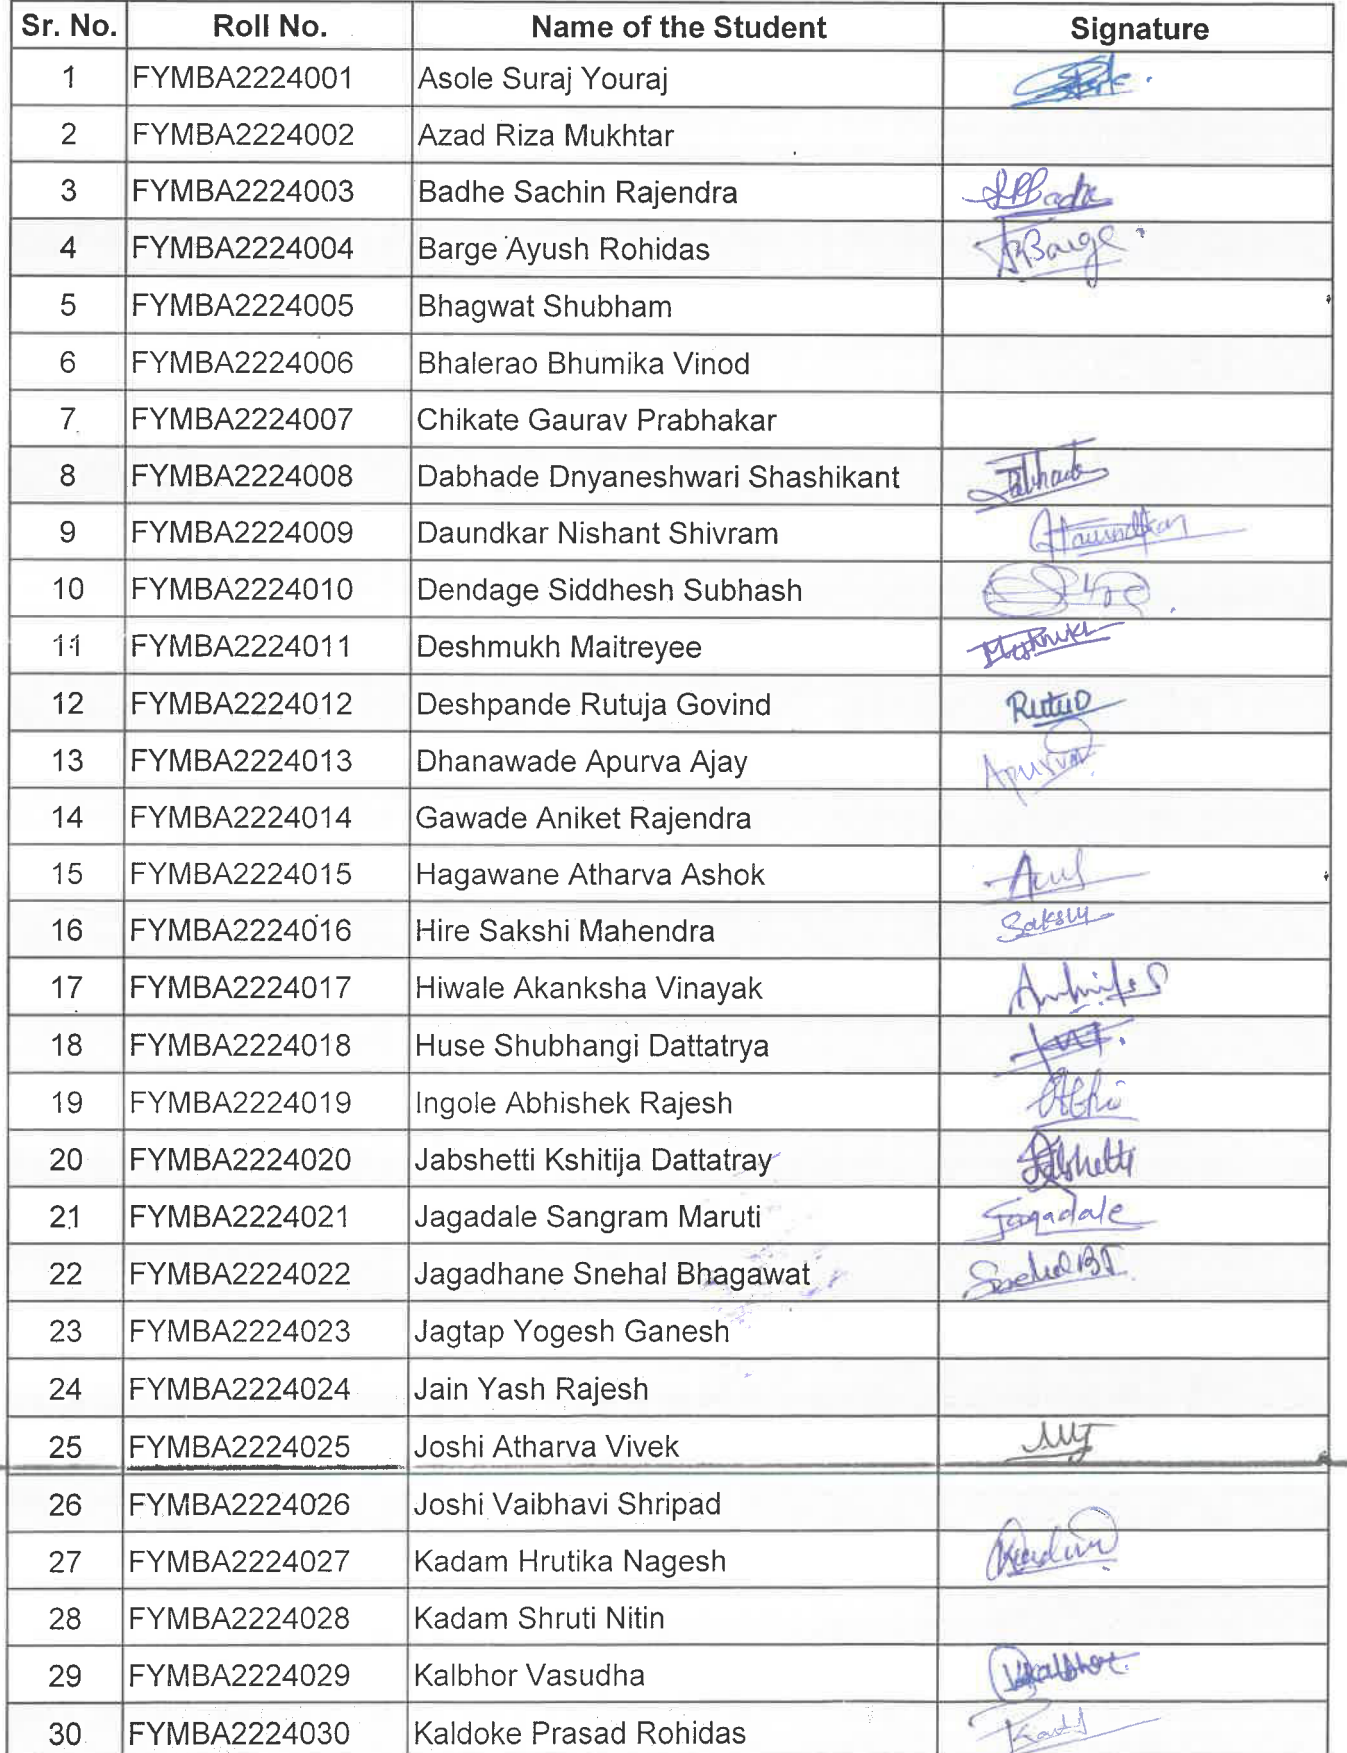 Sr. No. Roll No. Name of the Student Signature
1 FYMBA2224001 Asole Suraj Youraj
2 FYMBA2224002 Azad Riza Mukhtar
3 FYMBA2224003 Badhe Sachin Rajendra
4 FYMBA2224004 Barge Ayush Rohidas ARBarge
5 FYMBA2224005 Bhagwat Shubham
6 FYMBA2224006 Bhalerao Bhumika Vinod
7 FYMBA2224007 Chikate Gaurav Prabhakar
8 FYMBA2224008 Dabhade Dnyaneshwari Shashikant Dabhade
9 FYMBA2224009 Daundkar Nishant Shivram
10 FYMBA2224010 Dendage Siddhesh Subhash
11 FYMBA2224011 Deshmukh Maitreyee
12 FYMBA2224012 Deshpande Rutuja Govind RutuD
13 FYMBA2224013 Dhanawade Apurva Ajay Apurva
14 FYMBA2224014 Gawade Aniket Rajendra
15 FYMBA2224015 Hagawane Atharva Ashok
16 FYMBA2224016 Hire Sakshi Mahendra Sakshi
17 FYMBA2224017 Hiwale Akanksha Vinayak
18 FYMBA2224018 Huse Shubhangi Dattatrya
19 FYMBA2224019 Ingole Abhishek Rajesh Abhi
20 FYMBA2224020 Jabshetti Kshitija Dattatray Jabshetti
21 FYMBA2224021 Jagadale Sangram Maruti Jagadale
22 FYMBA2224022 Jagadhane Snehal Bhagawat SnehalBJ
23 FYMBA2224023 Jagtap Yogesh Ganesh
24 FYMBA2224024 Jain Yash Rajesh
25 FYMBA2224025 Joshi Atharva Vivek
26 FYMBA2224026 Joshi Vaibhavi Shripad
27 FYMBA2224027 Kadam Hrutika Nagesh
28 FYMBA2224028 Kadam Shruti Nitin
29 FYMBA2224029 Kalbhor Vasudha VKalbhor
30 FYMBA2224030 Kaldoke Prasad Rohidas